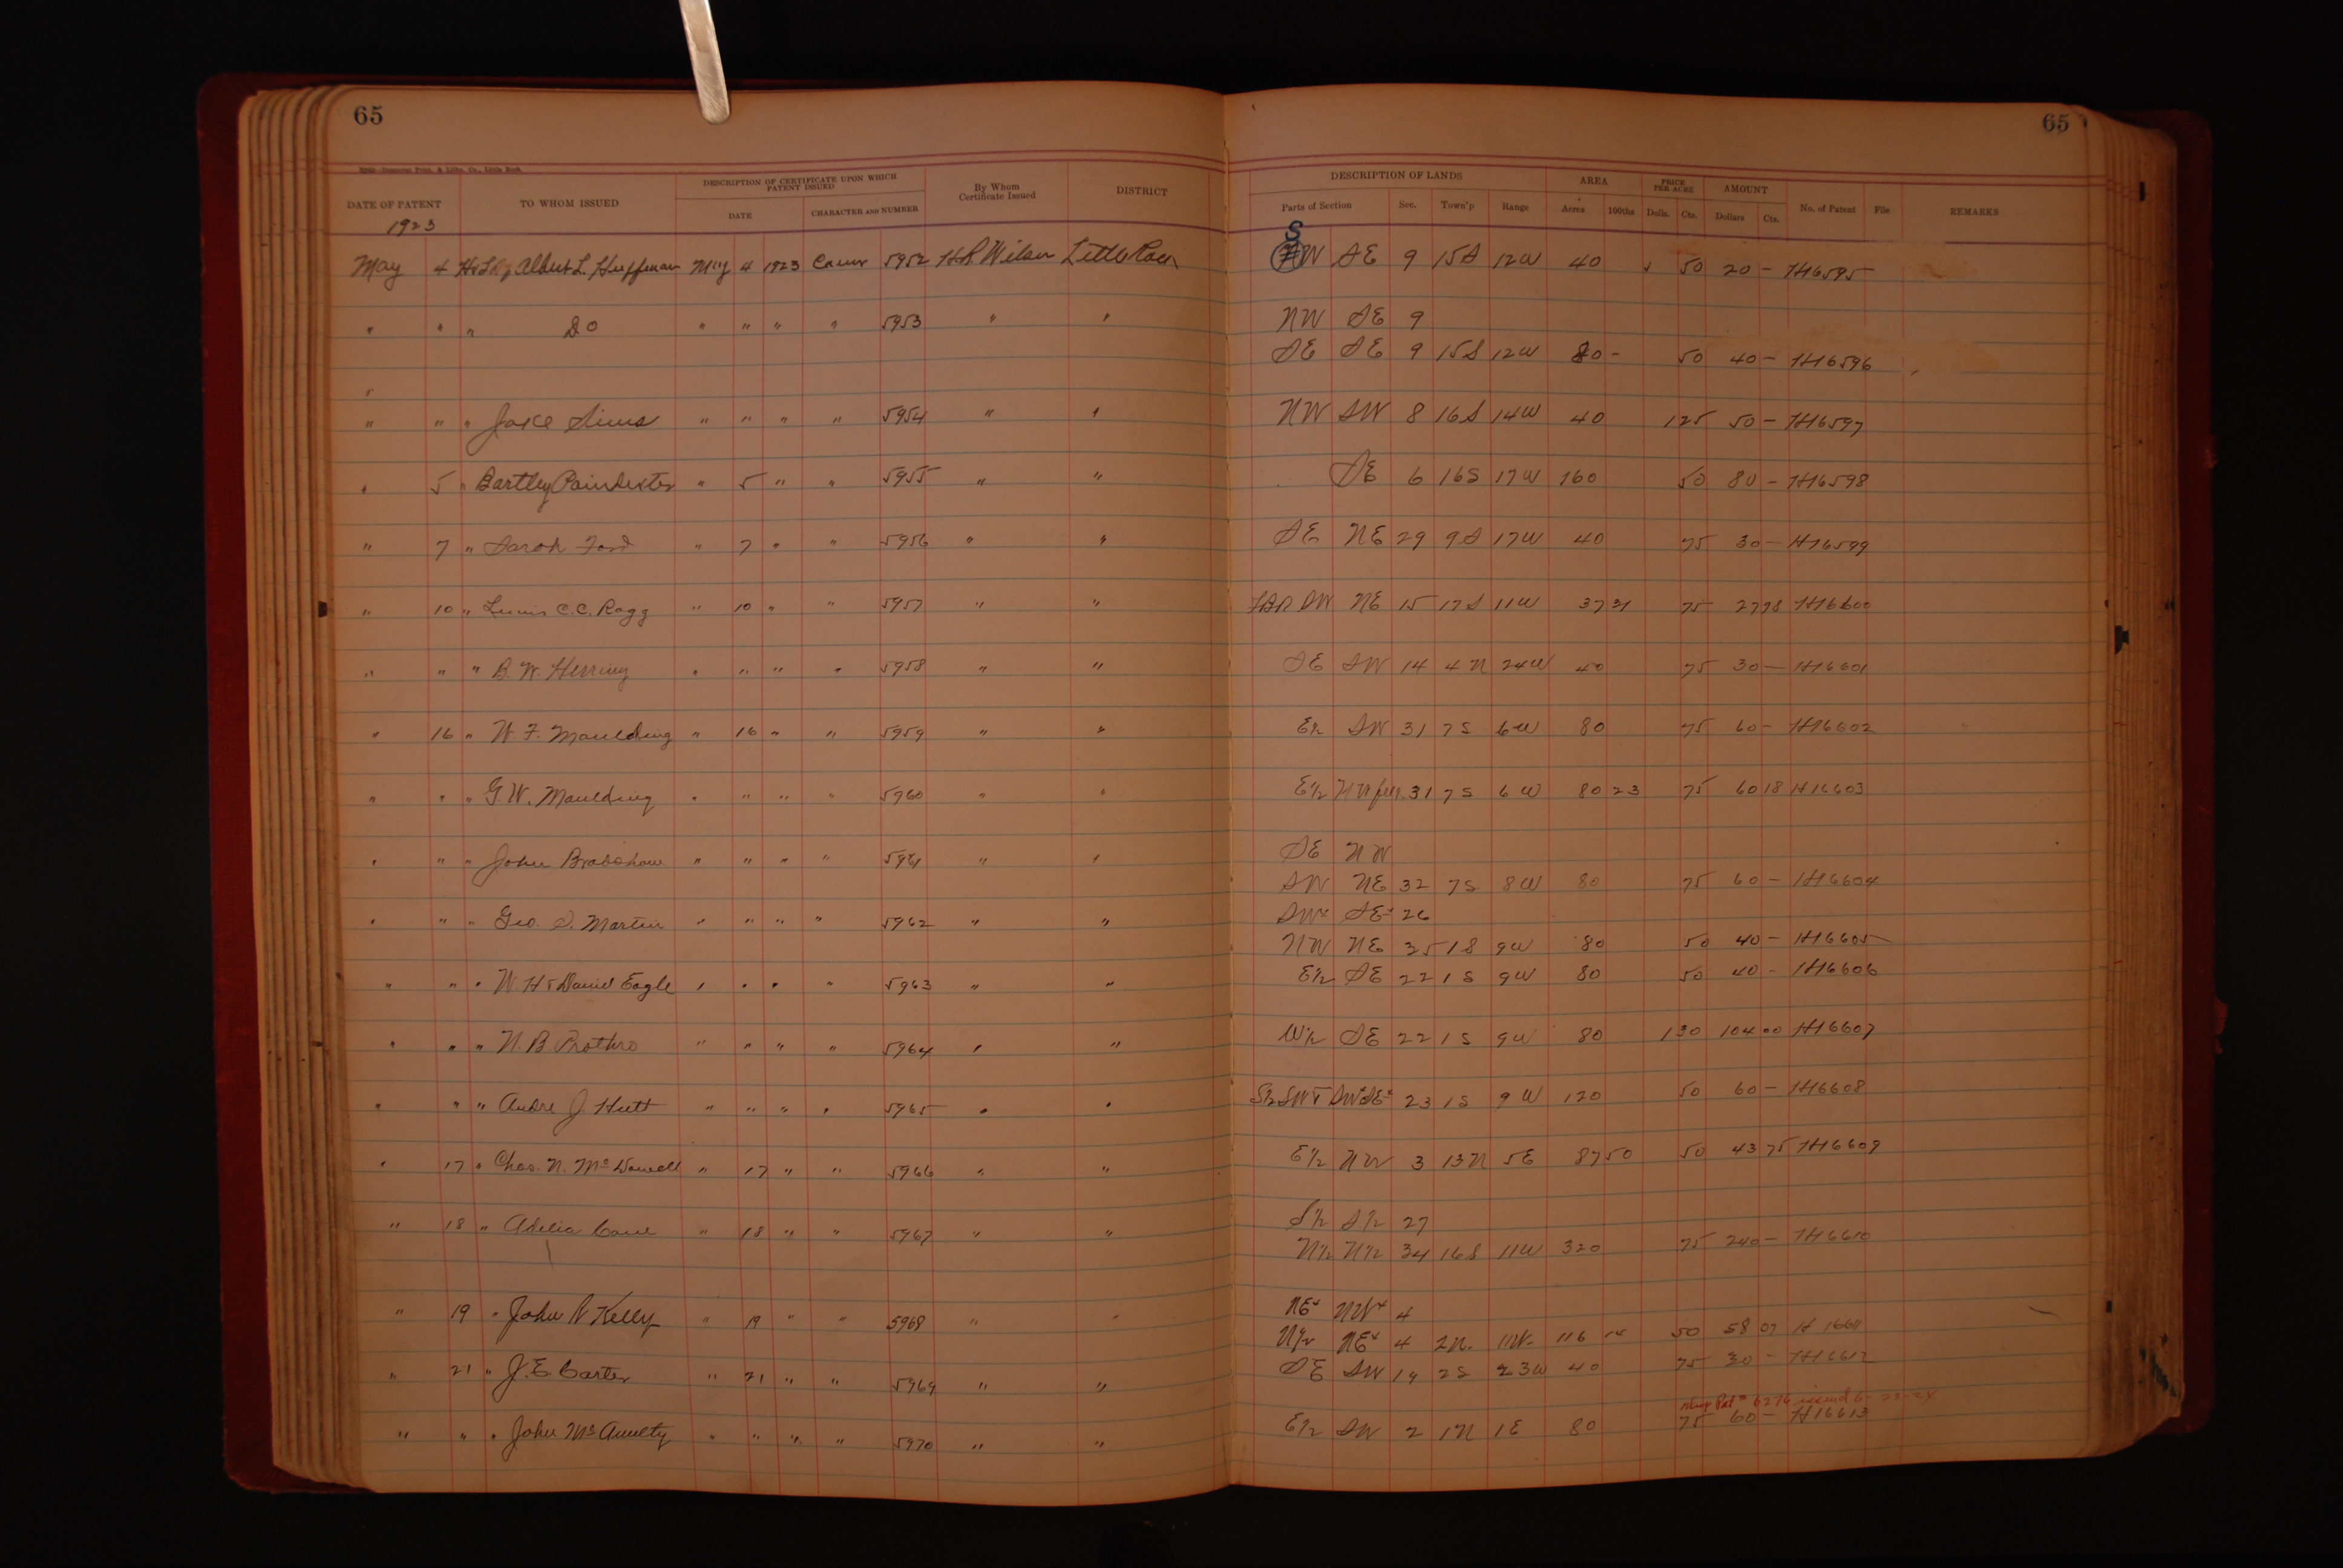 65
DATE OF PATENT TO WHOM ISSUED DESCRIPTION OF CERTIFICATE UPON WHICH PATENT ISSUED DATE CHARACTER AND NUMBER By Whom Certificate Issued DISTRICT
1923
May 4 Albert L. Huffman May 4 1923 5952 H R Wilson Little Rock
" " " Do " " " " 5953 " "
" " " Jake Sims " " " " 5954 " "
" 5 " Bartley Poindexter " 5 " " 5955 " "
" 7 " Sarah Ford " 7 " " 5956 " "
" 10 " C. C. Ragg " 10 " " 5957 " "
" " " B. W. Herring " " " " 5958 " "
" 16 " W. F. Maulding " 16 " " 5959 " "
" " " G. W. Maulding " " " " 5960 " "
" " " John Bradshaw " " " " 5961 " "
" " " Geo. S. Martin " " " " 5962 " "
" " " W. H & Daniel Eagle " " " " 5963 " "
" " " N. B. Prothro " " " " 5964 " "
" " " Andre J Hutt " " " " 5965 " "
" 17 " Chas. N. McDowell " 17 " " 5966 " "
" 18 " Adelia Cone " 18 " " 5967 " "
" 19 " John R Kelly " 19 " " 5968 " "
" 21 " J. E. Carter " 21 " " 5969 " "
" " " John McAnulty " " " " 5970 " "
65
DESCRIPTION OF LANDS AREA PRICE PER ACRE AMOUNT
Parts of Section Sec. Town'p Range Acres 100ths Dolls. Cts. Dollars Cts. No. of Patent File REMARKS
S
NW SE 9 15S 12W 40 50 20 - H6595
NW SE 9
SE SE 9 15S 12W 80 - 50 40 - H6596
NW SW 8 16S 14W 40 1 25 50 - H6597
SE 6 16S 17W 160 50 80 - H6598
SE NE 29 9S 17W 40 75 30 - H6599
SW NE 15 17S 11W 37 31 75 27 98 H6600
SE SW 14 4N 24W 40 75 30 - H6601
E½ SW 31 7S 6W 80 75 60 - H6602
E½ NW 31 7S 6W 80 23 75 60 18 H6603
SE NW
SW NE 32 7S 8W 80 75 60 - H6604
SW SE 26
NW NE 35 1S 9W 80 50 40 - H6605
E½ SE 22 1S 9W 80 50 40 - H6606
W½ SE 22 1S 9W 80 1 30 104 00 H6607
S½ SW & SW SE 23 1S 9W 120 50 60 - H6608
E½ NW 3 13N 5E 87 50 50 43 75 H6609
S½ S½ 27
N½ N½ 34 16S 11W 320 75 240 - H6610
NE NW 4
N½ NE 4 2N. 11W. 116 14 50 58 07 H 6611
SE SW 19 2S 23W 40 75 30 - H6612
Pat # 6276 issued
E½ SW 2 1N 1E 80 75 60 - H6613